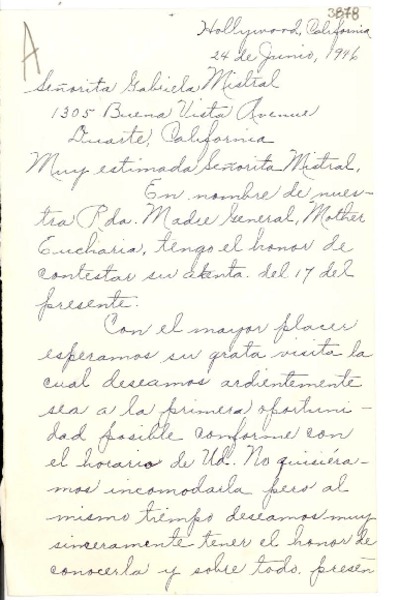 3878
A
Hollywood, California
24 de Junio, 1946
Señorita Gabriela Mistral
1305 Buena Vista Avenue
Duarte, California
Muy estimada Señorita Mistral,
En nombre de nues-
tra Rda. Madre General, Mother
Eucharia, tengo el honor de
contestar su atenta. del 17 del
presente.
Con el mayor placer
esperamos su grata visita la
cual deseamos ardientemente
sea a la primera oportuni-
dad posible conforme con
el horario de Ud. No quisiéra-
mos incomodarla pero al
mismo tiempo deseamos muy
sinceramente tener el honor de
conocerla y sobre todo. presen